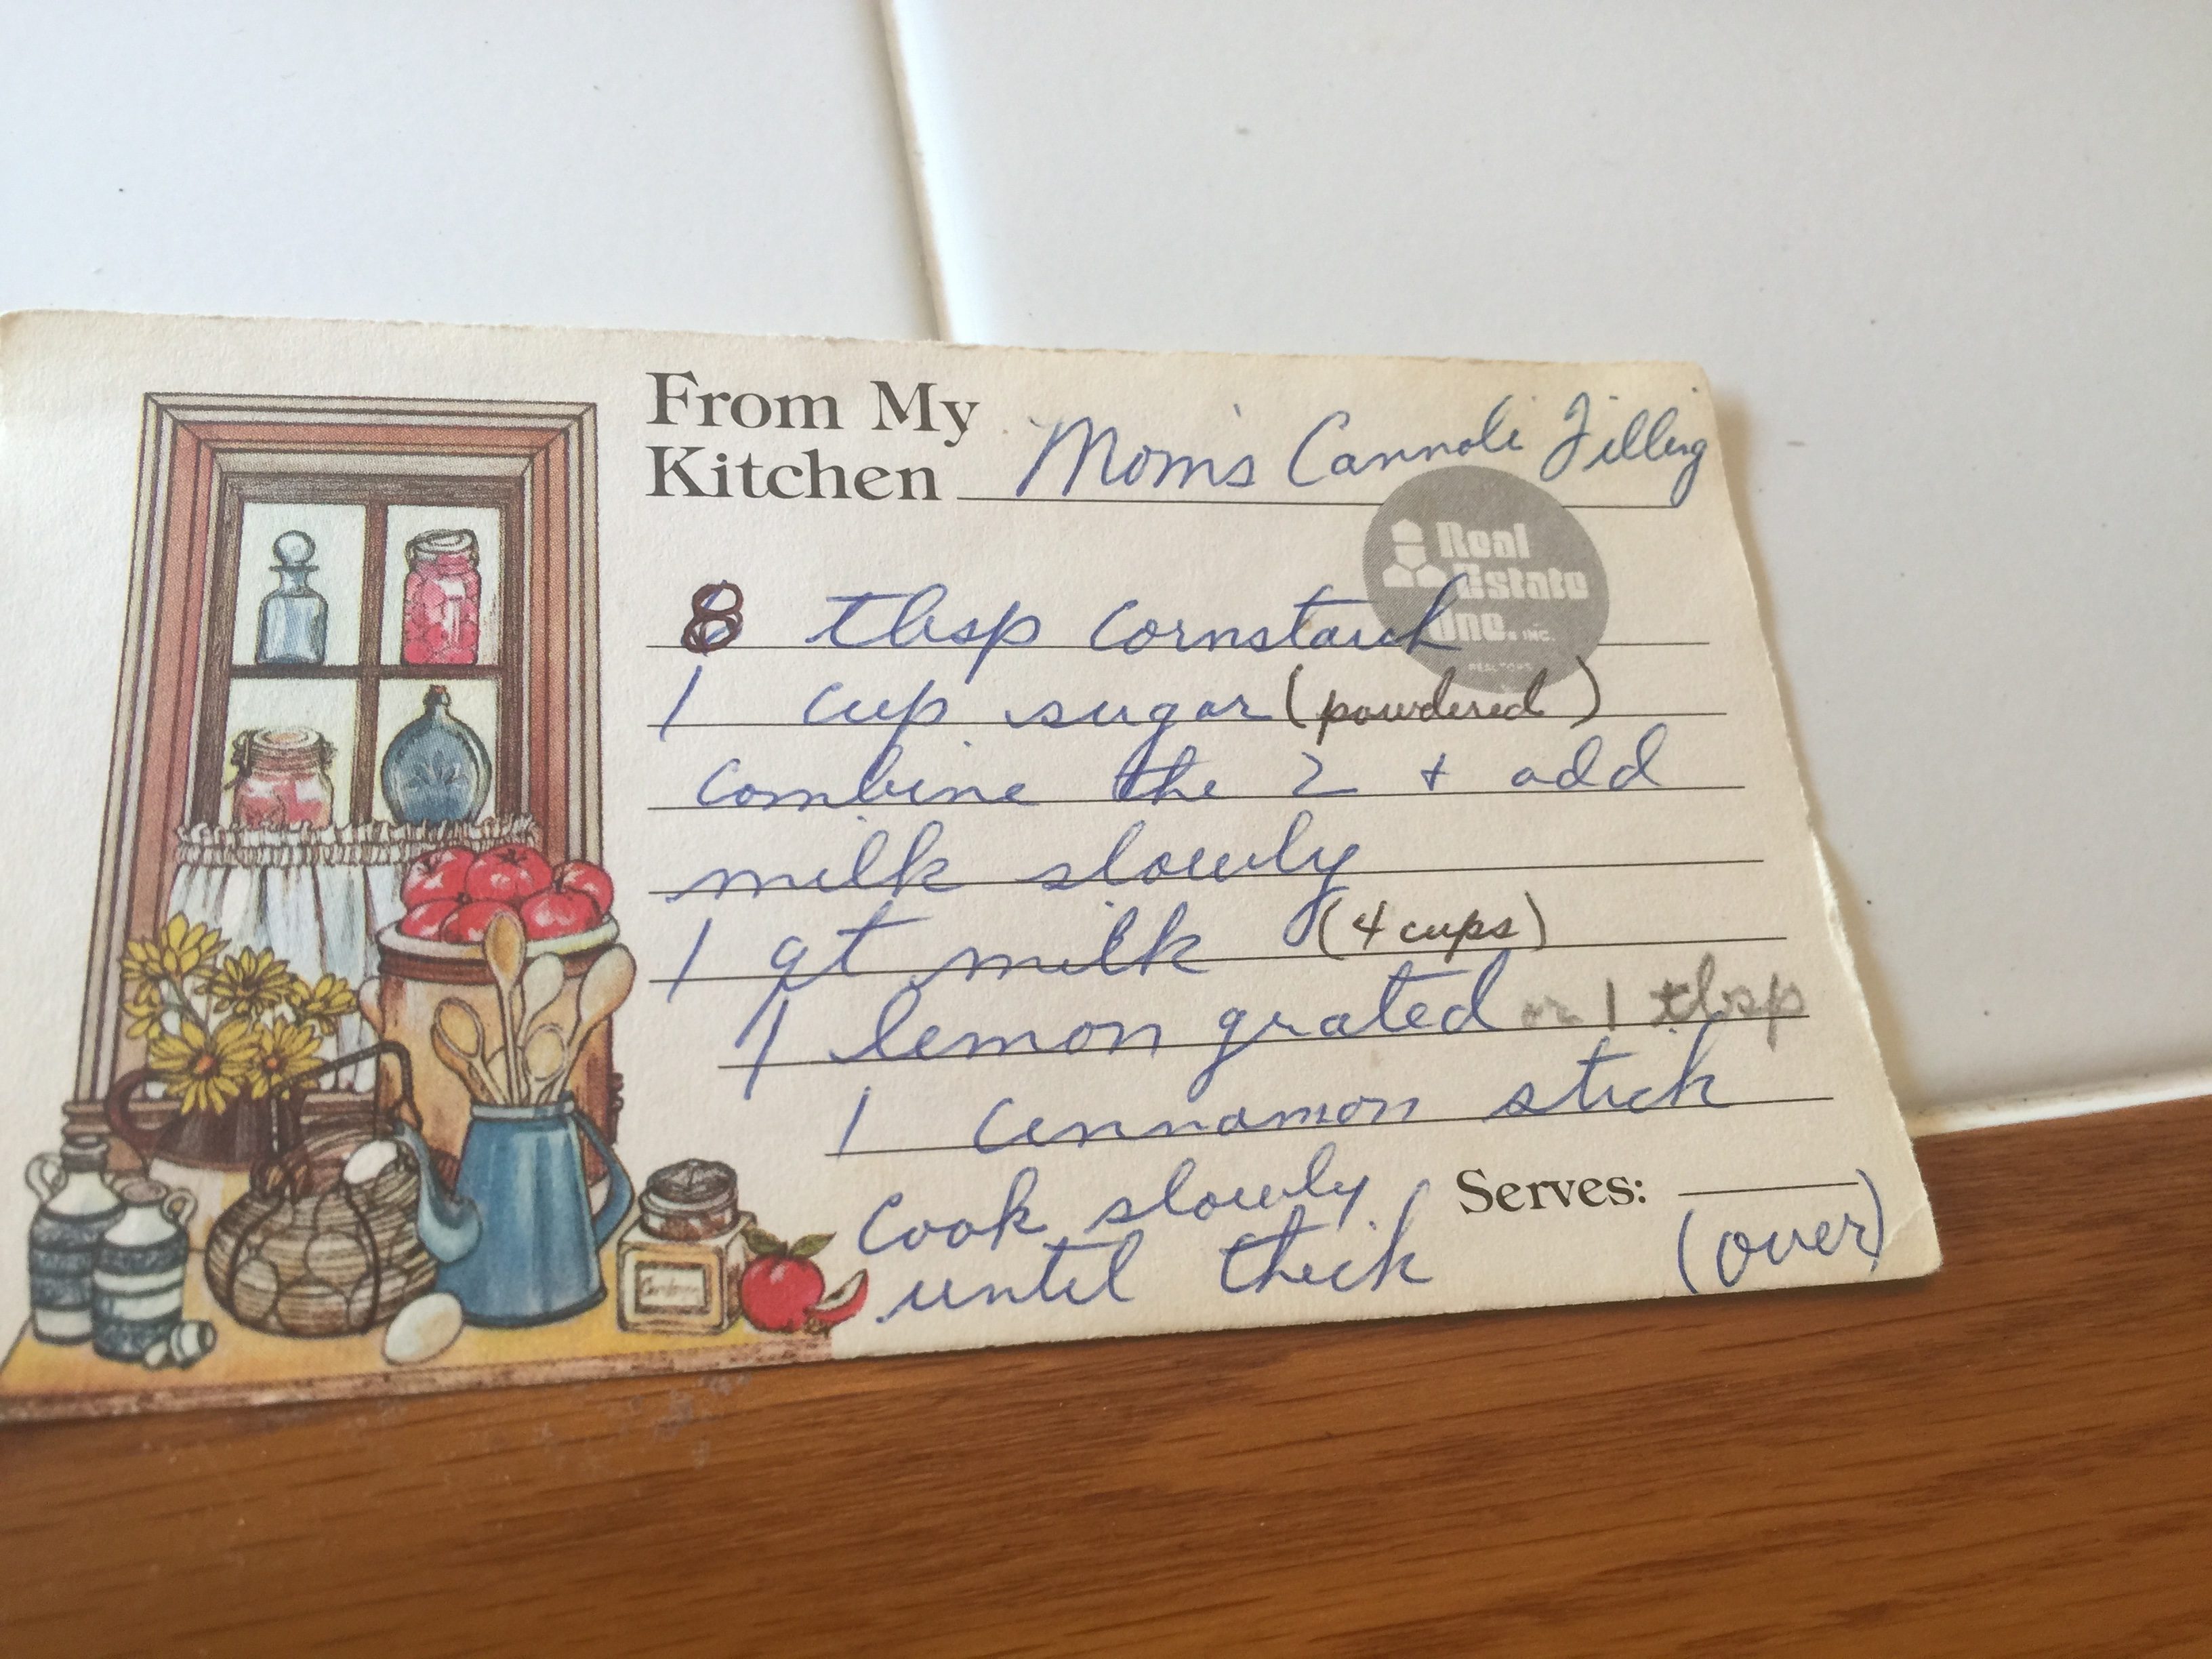 From My
Kitchen Mom's Cannoli Filling
Real
Estate
One. INC.
REALTORS
8 tbsp cornstarch
1 cup sugar (powdered)
combine the 2 + add
milk slowly
1 qt milk (4 cups)
1 lemon grated or 1 tbsp
1 cinnamon stick
cook slowly
until thick
Serves:
(over)